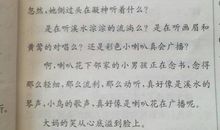 忽然,她侧过头在凝神听着什么?
是在听溪水淙淙的流淌么?是在听画眉和
黄莺的对唱么?还是彩色小喇叭真会广播?
啊,喇叭花下邻家的小男孩正在念书,念得
那么轻细,那么流利,那么动听,真好像是溪水的
琴声,小鸟的歌声,真好像是喇叭花在广播呢。
大妈的笑从心底溢到脸上。